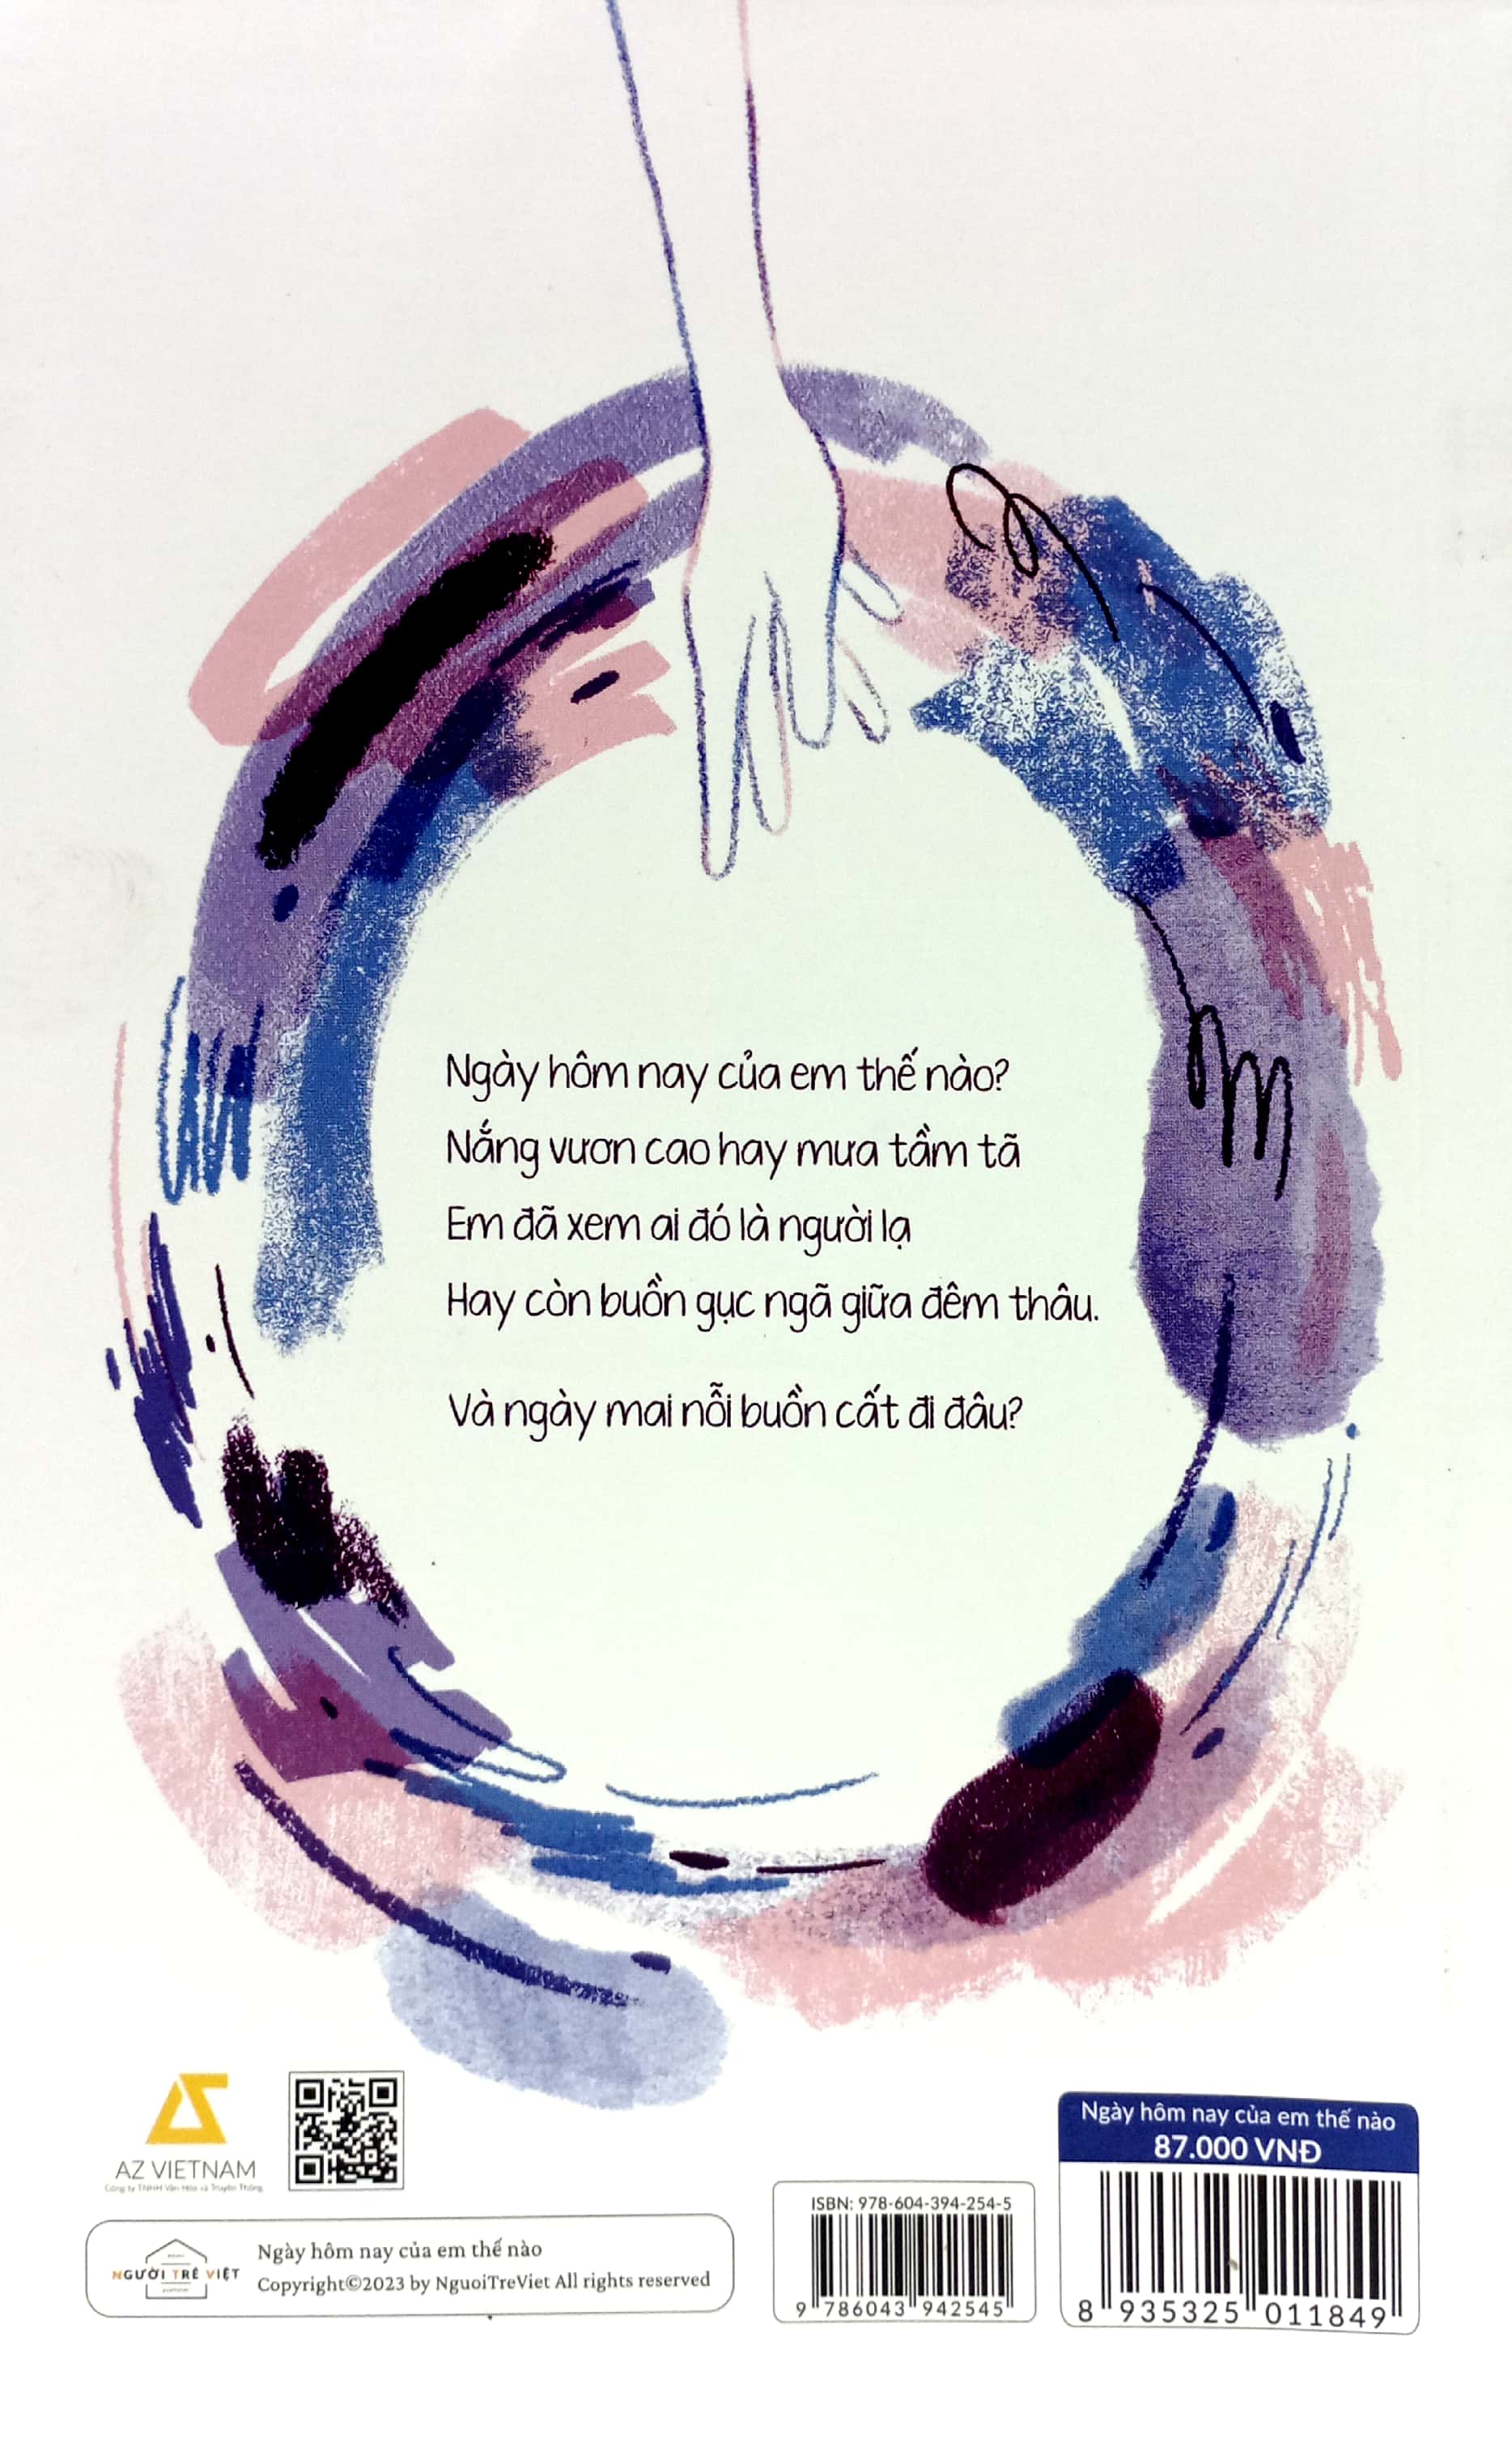 Ngày hôm nay của em thế nào?
Nắng vươn cao hay mưa tầm tã
Em đã xem ai đó là người lạ
Hay còn buồn gục ngã giữa đêm thâu.
Và ngày mai nỗi buồn cất đi đâu?
AZ VIETNAM
Công ty TNHH Văn Hóa và Truyền Thông
NGƯỜI TRẺ VIỆT
Ngày hôm nay của em thế nào
Copyright©2023 by NguoiTreViet All rights reserved
ISBN: 978-604-394-254-5
9 786043 942545
Ngày hôm nay của em thế nào
87.000 VNĐ
8 935325 011849